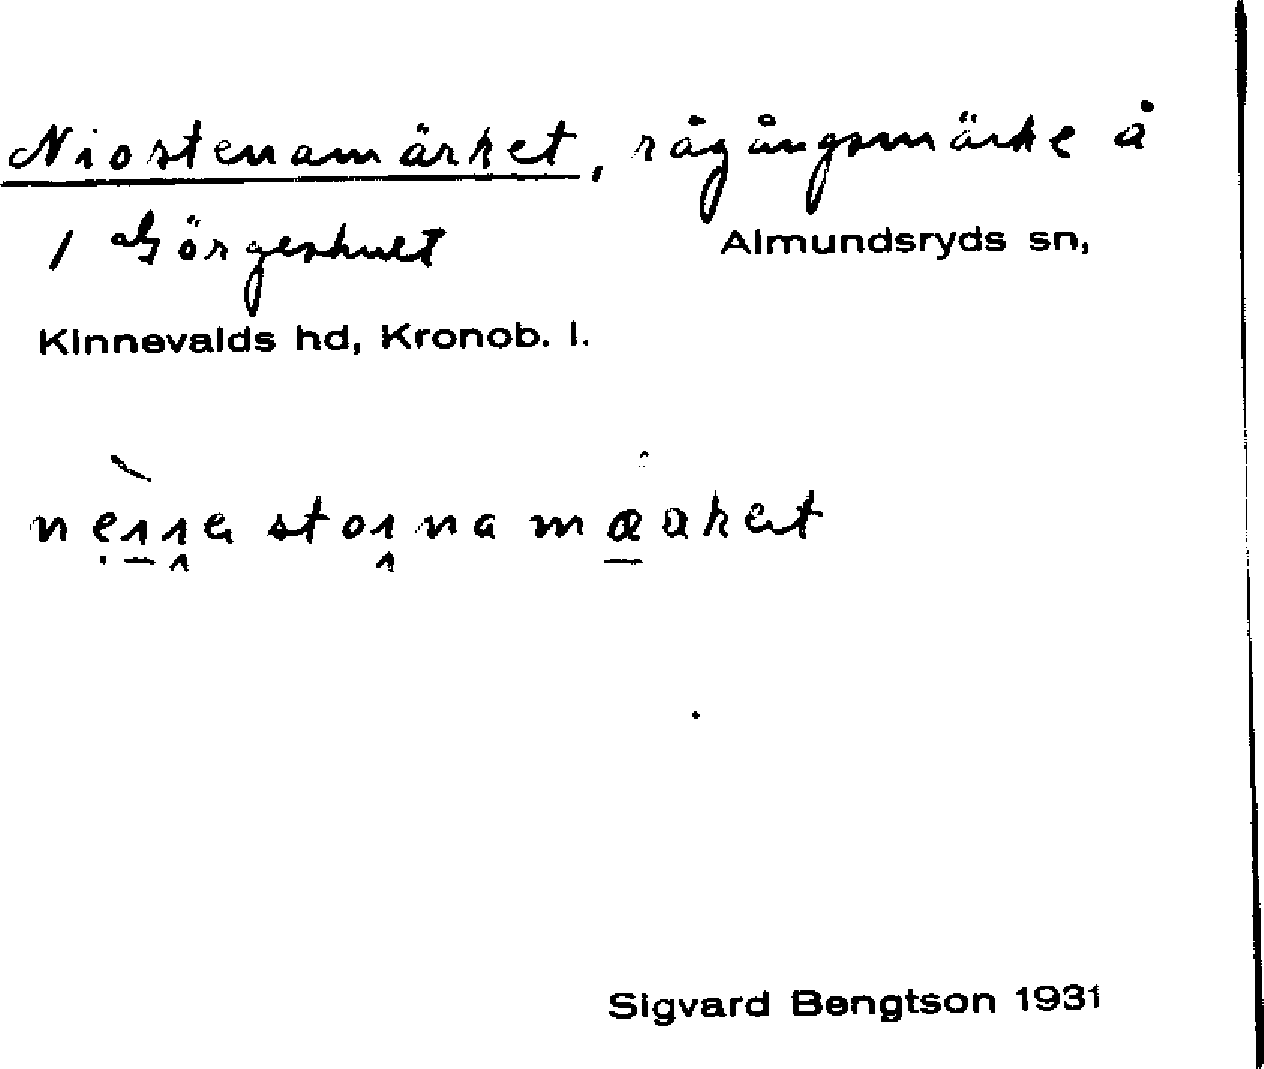 Niostenamärket, rågångsmärke å
1 Görgeshult Almundsryds sn,
Kinnevalds hd, Kronob. l.
Sigvard Bengtson 1931